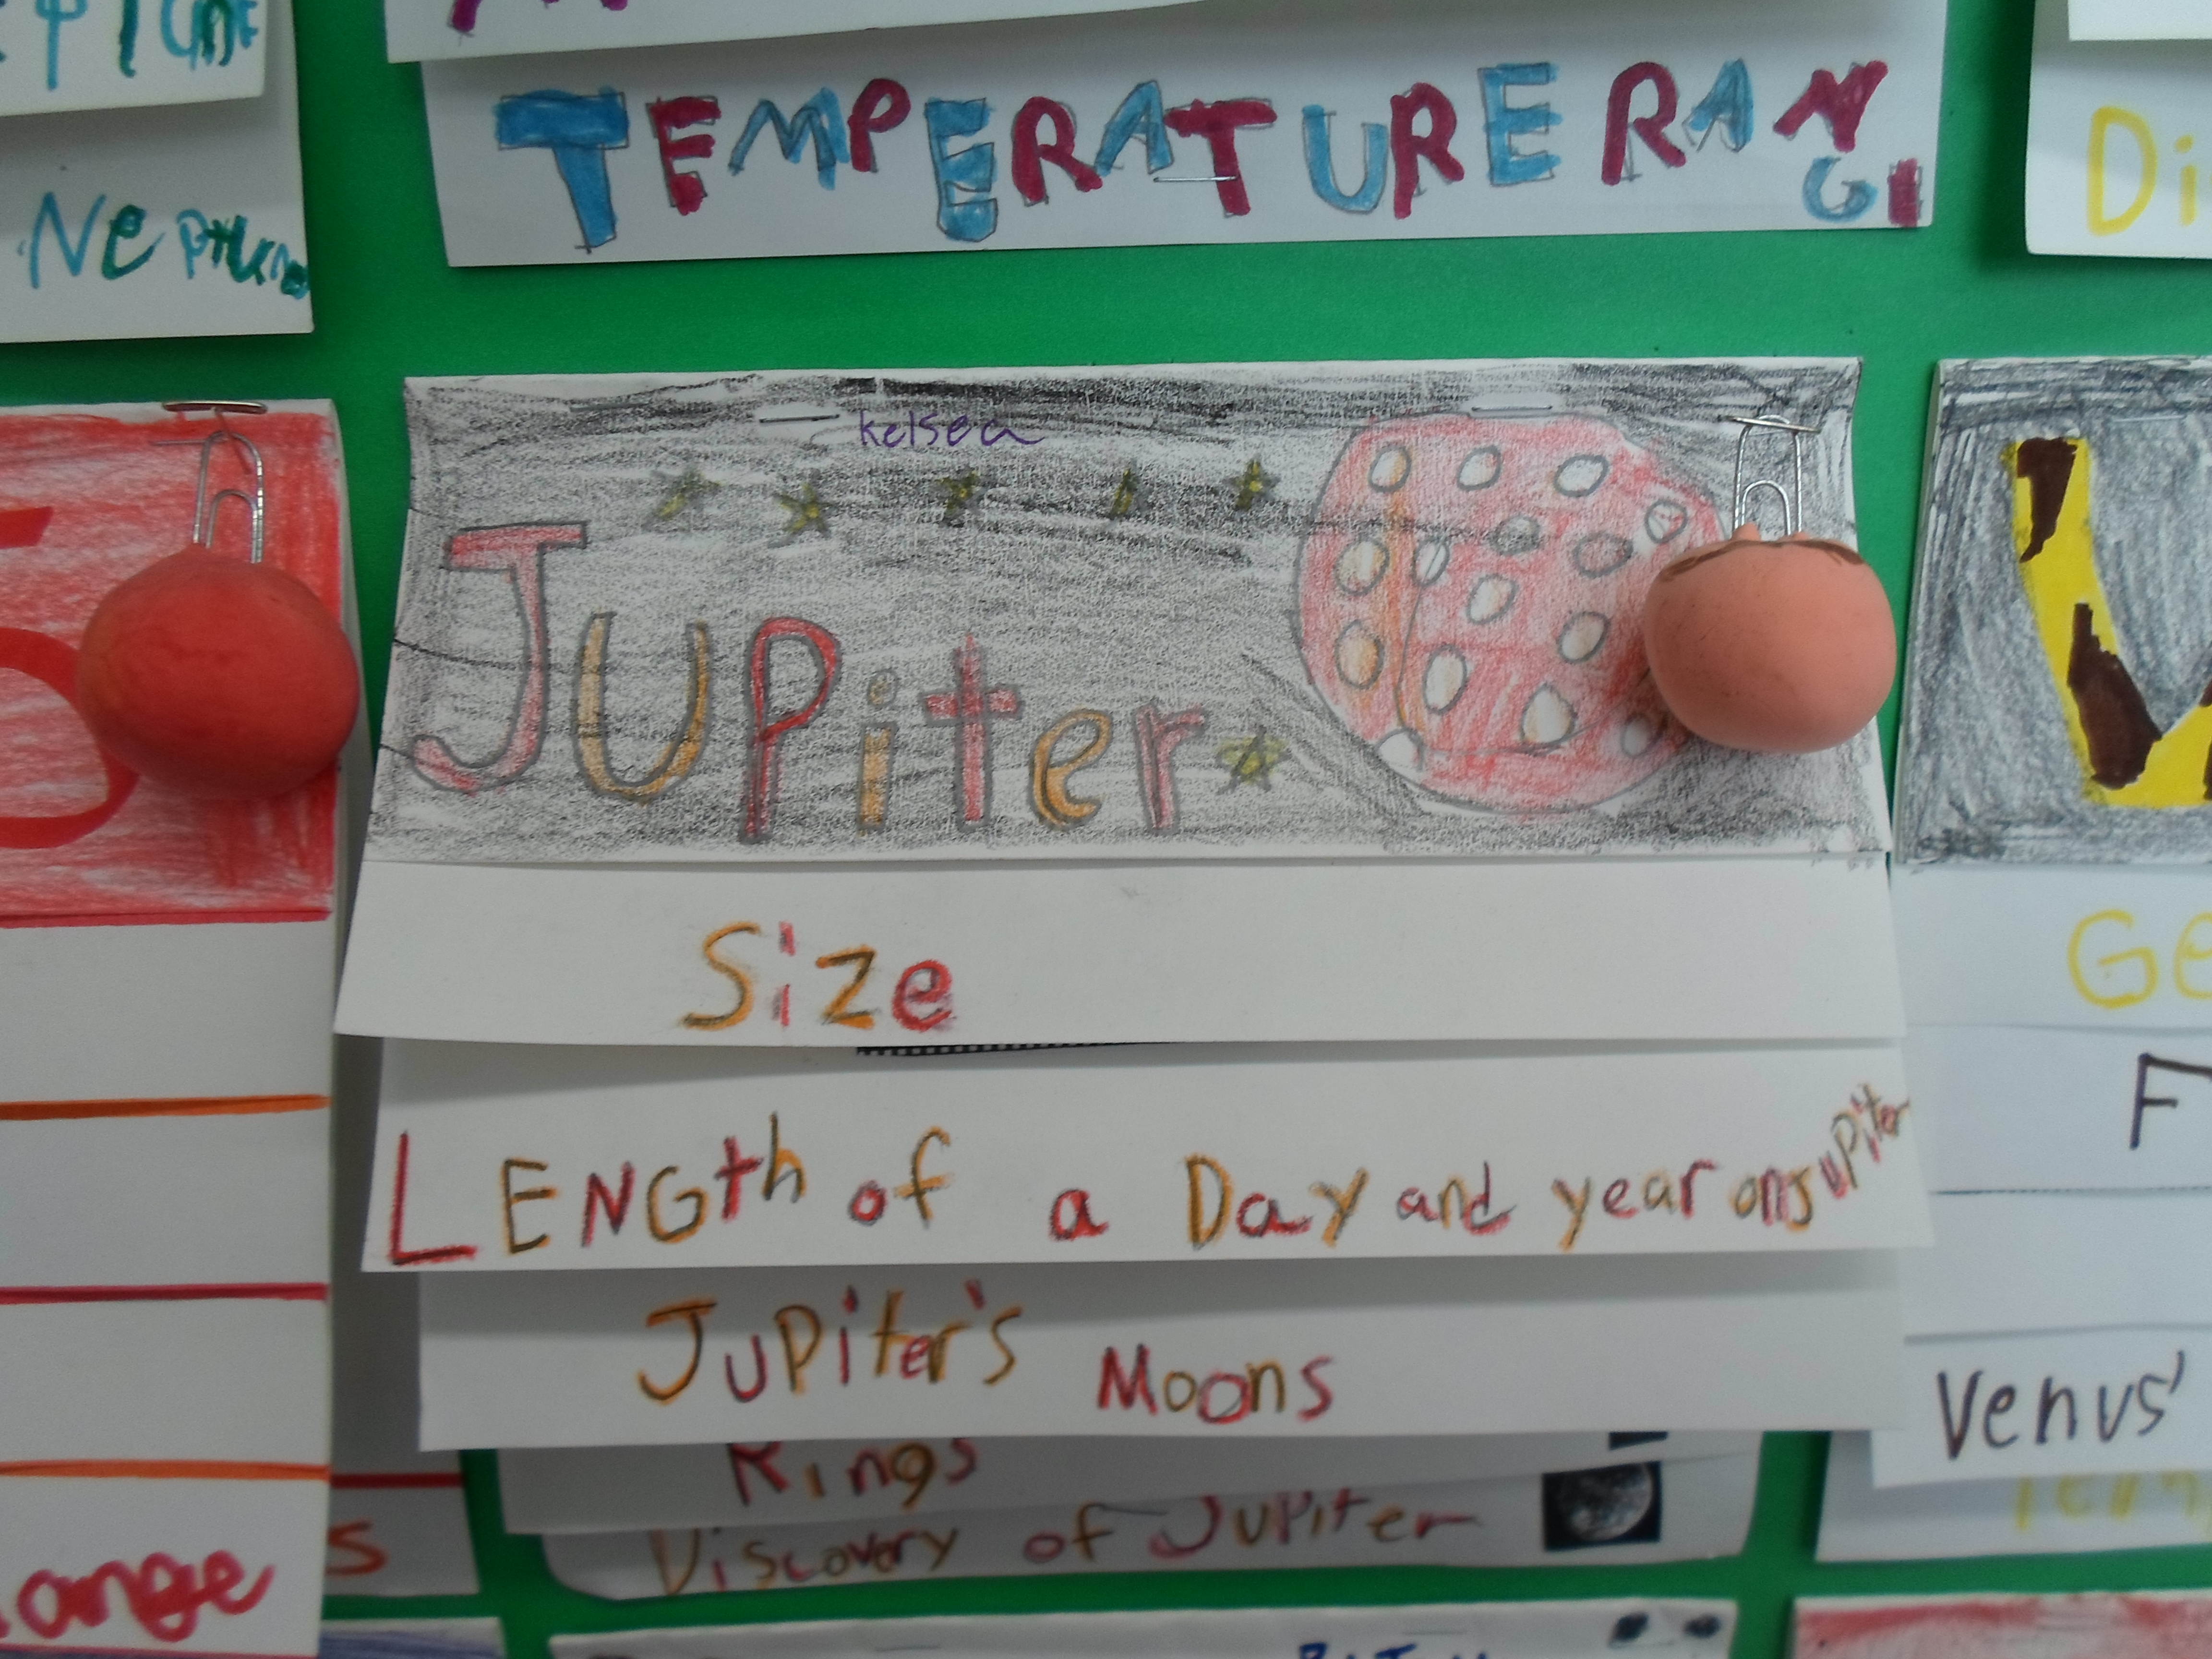 TEMPERATURE RAN
G
Neptune
Di
kelsea
JUPiter
Size
Ge
LENGth of a Day and year on JUPiter
F
JUPiter's Moons
Venus'
Rings
Discovery of JUPiter
ange